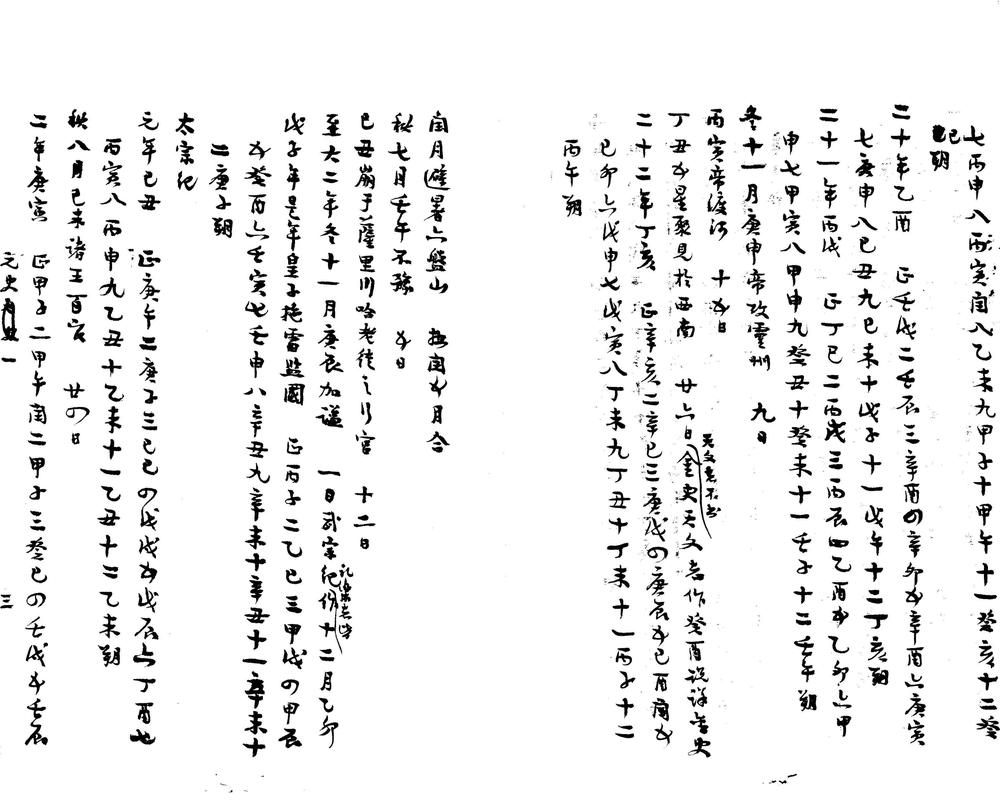 七丙申八丙寅閏八乙未九甲子十甲午十一癸亥十二癸
巳朔
二十年乙酉　正壬戌二壬辰三辛酉四辛卯五辛酉六庚寅
七庚申八己丑九己未十戊子十一戊午十二丁亥朔
二十一年丙戌　正丁巳二丙戌三丙辰四乙酉五乙卯六甲
申七甲寅八甲申九癸丑十癸未十一壬子十二壬午朔
冬十一月庚申帝攻靈州　九日
丙寅帝渡河　十五日
丁丑五星聚見於西南　廿六日金史天文志作癸酉說詳金史
天文志不書
二十二年丁亥　正辛亥二辛巳三庚戌四庚辰五己酉閏五
己卯六戊申七戊寅八丁未九丁丑十丁未十一丙子十二
丙午朔
閏月避暑六盤山　按閏五月合
秋七月壬午不豫　五日
己丑崩于薩里川哈老徒之行宮　十二日
至大二年冬十一月庚辰加謚　一日武宗紀作十二月乙卯
戊子年是年皇子拖雷監國　正丙子二乙巳三甲戌四甲辰
五癸酉六壬寅七壬申八辛丑九辛未十辛丑十一辛未十
二庚子朔
太宗紀
元年己丑　正庚午二庚子三己巳四戊戌五戊辰六丁酉七
丙寅八丙申九乙丑十乙未十一乙丑十二乙未朔
秋八月己未諸王百官　廿四日
二年庚寅　正甲子二甲午閏二甲子三癸巳四壬戌五壬辰
元史一　三